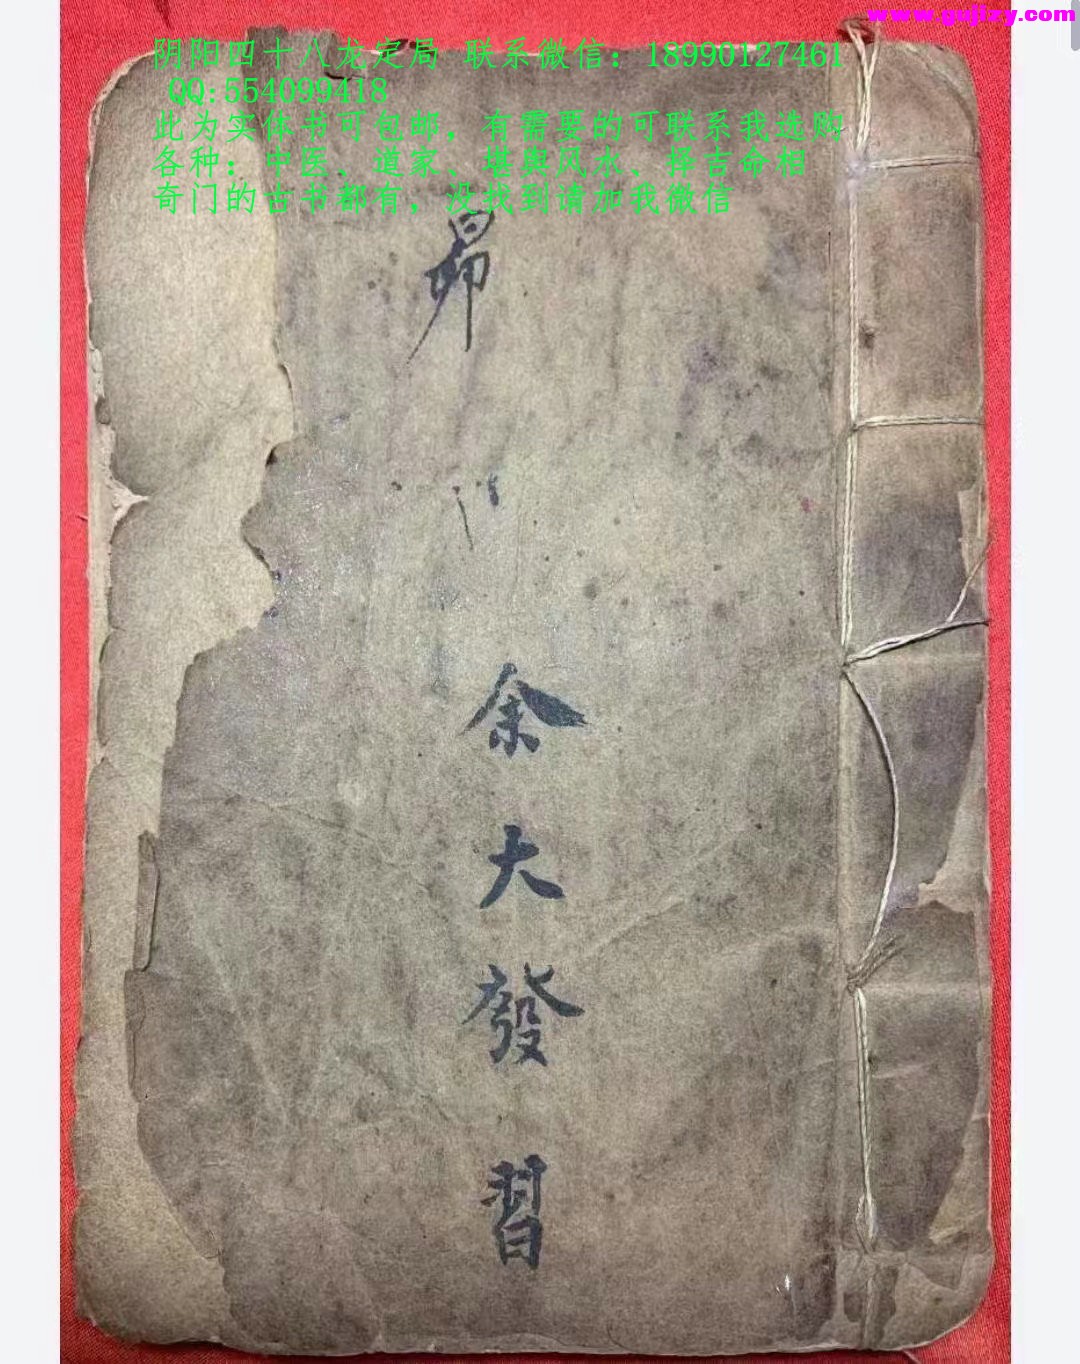 www.gujlzy.com
阴阳四十八龙定局 联系微信：18990127461
QQ:554099418
此为实体书可包邮，有需要的可联系我选购
各种：中医、道家、堪舆风水、择吉命相
奇门的古书都有，没找到请加我微信
昴
余大發習